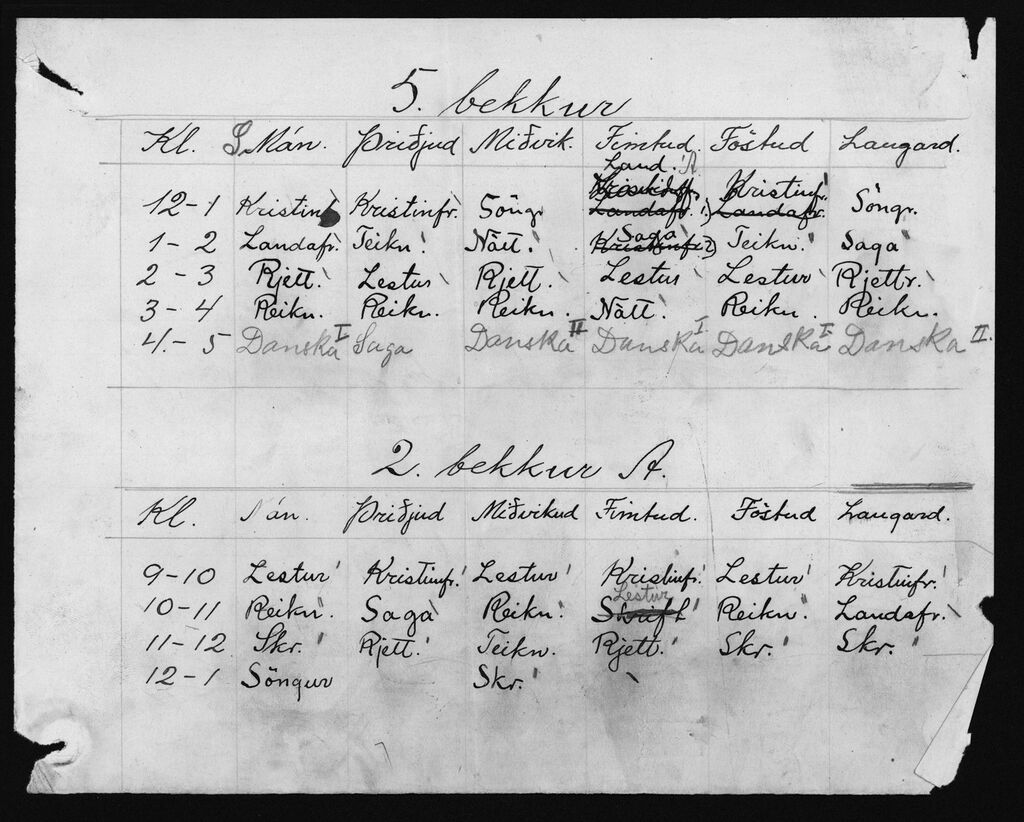 5. bekkur
Kl. Mán. Þriðjud Miðvik. Fimtud. Föstud Laugard.
Land. A
12-1 Kristinf Kristinfr. Söngr Landafr. 1) Kristinfr. Landafr. Söngr.
1-2 Landafr. Teikn. Nátt. Saga Kristinfr. 2) Teikn. Saga
2-3 Rjett. Lestur Rjett. Lestur Lestur Rjettr.
3-4 Reikn. Reikn. Reikn. Nátt. Reikn. Reikn.
4-5 Danska I Saga Danska II Danska I Danska I Danska II.
2. bekkur A.
Kl. Mán. Þriðjud Miðvikud Fimtud. Föstud Laugard.
9-10 Lestur Kristinfr. Lestur Kristinfr. Lestur Kristinfr.
10-11 Reikn. Saga Reikn. Lestur Skrift Reikn. Landafr.
11-12 Skr. Rjett. Teikn. Rjett. Skr. Skr.
12-1 Söngur Skr.